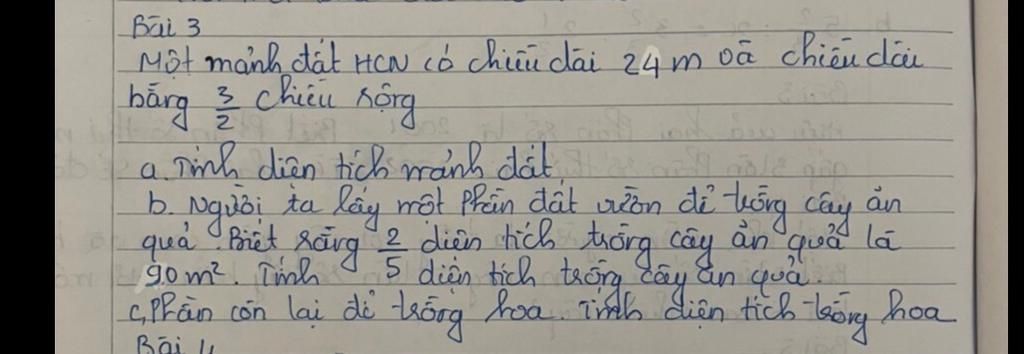 Bài 3
Một mảnh đất HCN có chiều dài 24 m và chiều dài
bằng 3/2 chiều rộng
a. Tính diện tích mảnh đất
b. Người ta lấy một phần đất vườn để trồng cây ăn
quả. Biết rằng 2/5 diện tích trồng cây ăn quả là
90 m². Tính diện tích trồng cây ăn quả.
c, Phần còn lại để trồng hoa. Tính diện tích trồng hoa
Bài 4